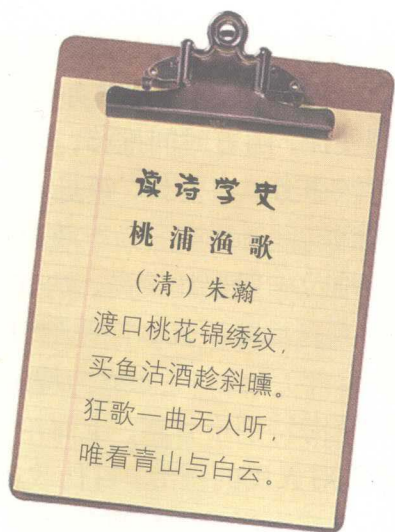 读诗学史
桃浦渔歌
（清）朱瀚
渡口桃花锦绣纹，
买鱼沽酒趁斜曛。
狂歌一曲无人听，
唯看青山与白云。